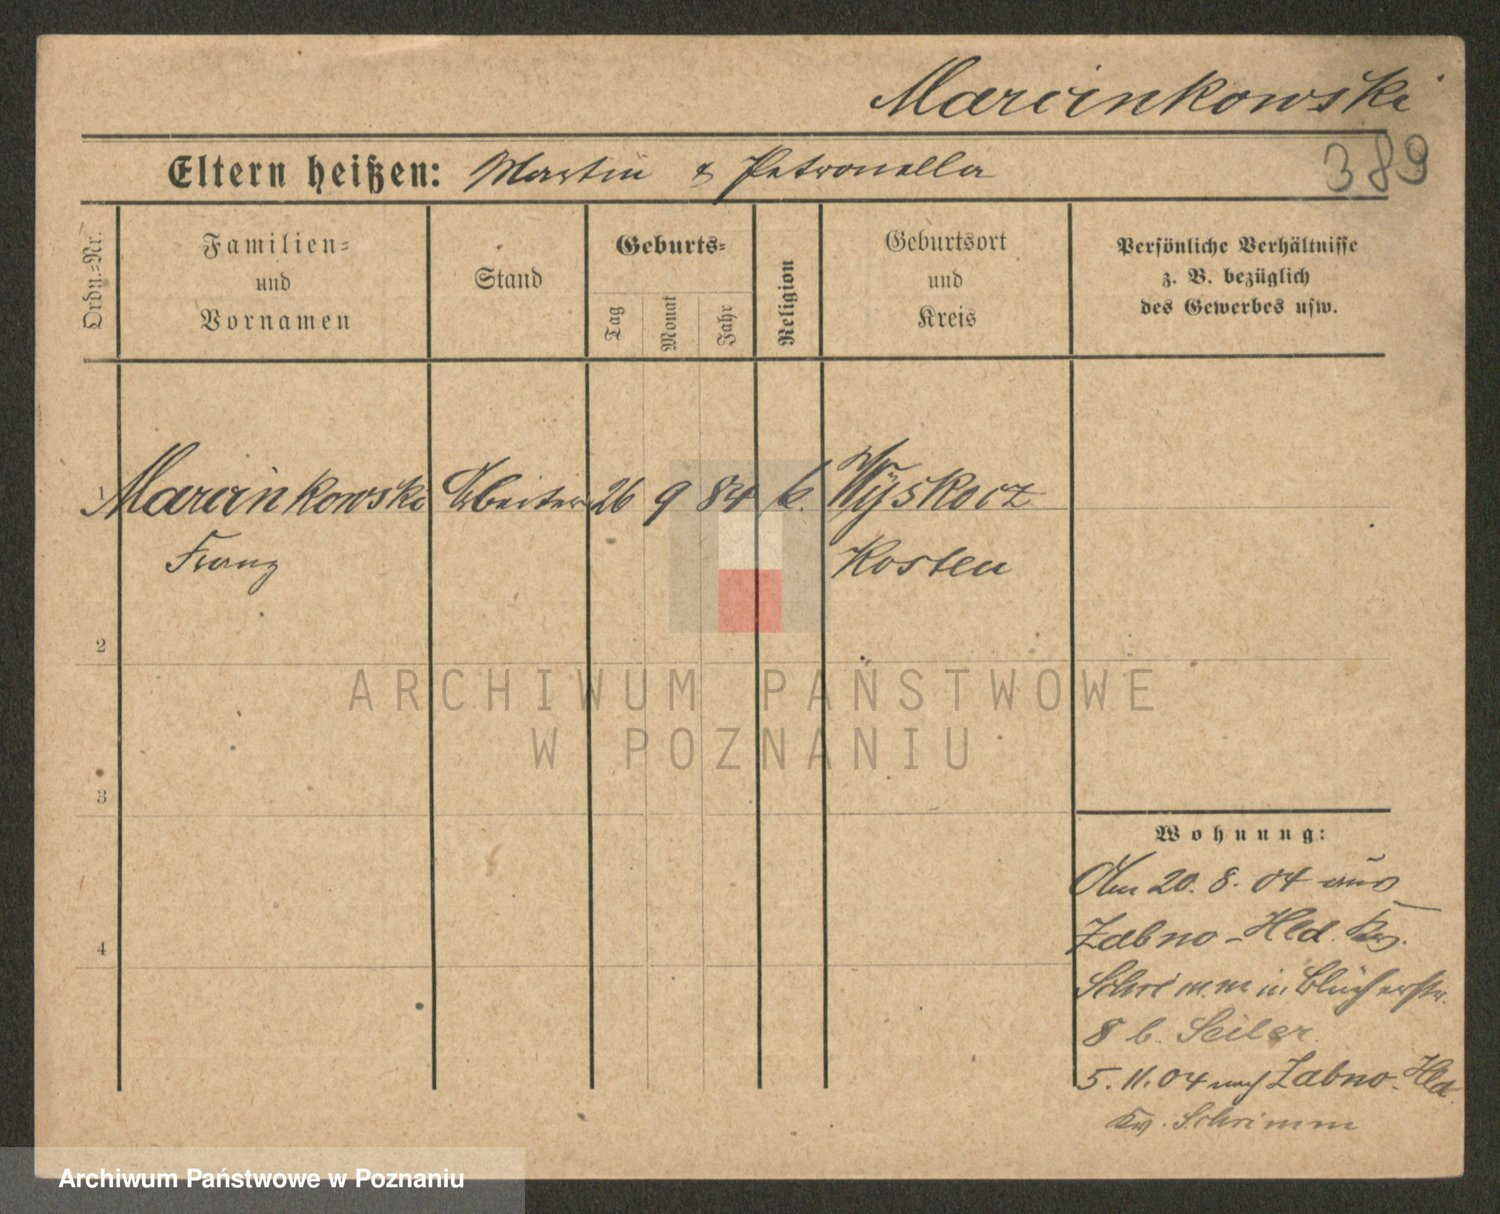 Marcinkowski
389
Eltern heißen: Martin & Petronella
Ordn.-Nr.
Familien-
und
Vornamen
Stand
Geburts-
Tag
Monat
Jahr
Religion
Geburtsort
und
Kreis
Persönliche Verhältnisse
z. B. bezüglich
des Gewerbes usw.
1 Marcinkowski Arbeiter 26 9 84 k. Wyskocz
Franz Kosten
2
ARCHIWUM PAŃSTWOWE
W POZNANIU
3
Wohnung:
Am 20. 8. 04 aus
Zabno-Hld. Krs.
Schrimm in Blücherstr.
8 b. Seiler
5. 11. 04 nach Zabno-Hld.
Krs. Schrimm
4
Archiwum Państwowe w Poznaniu